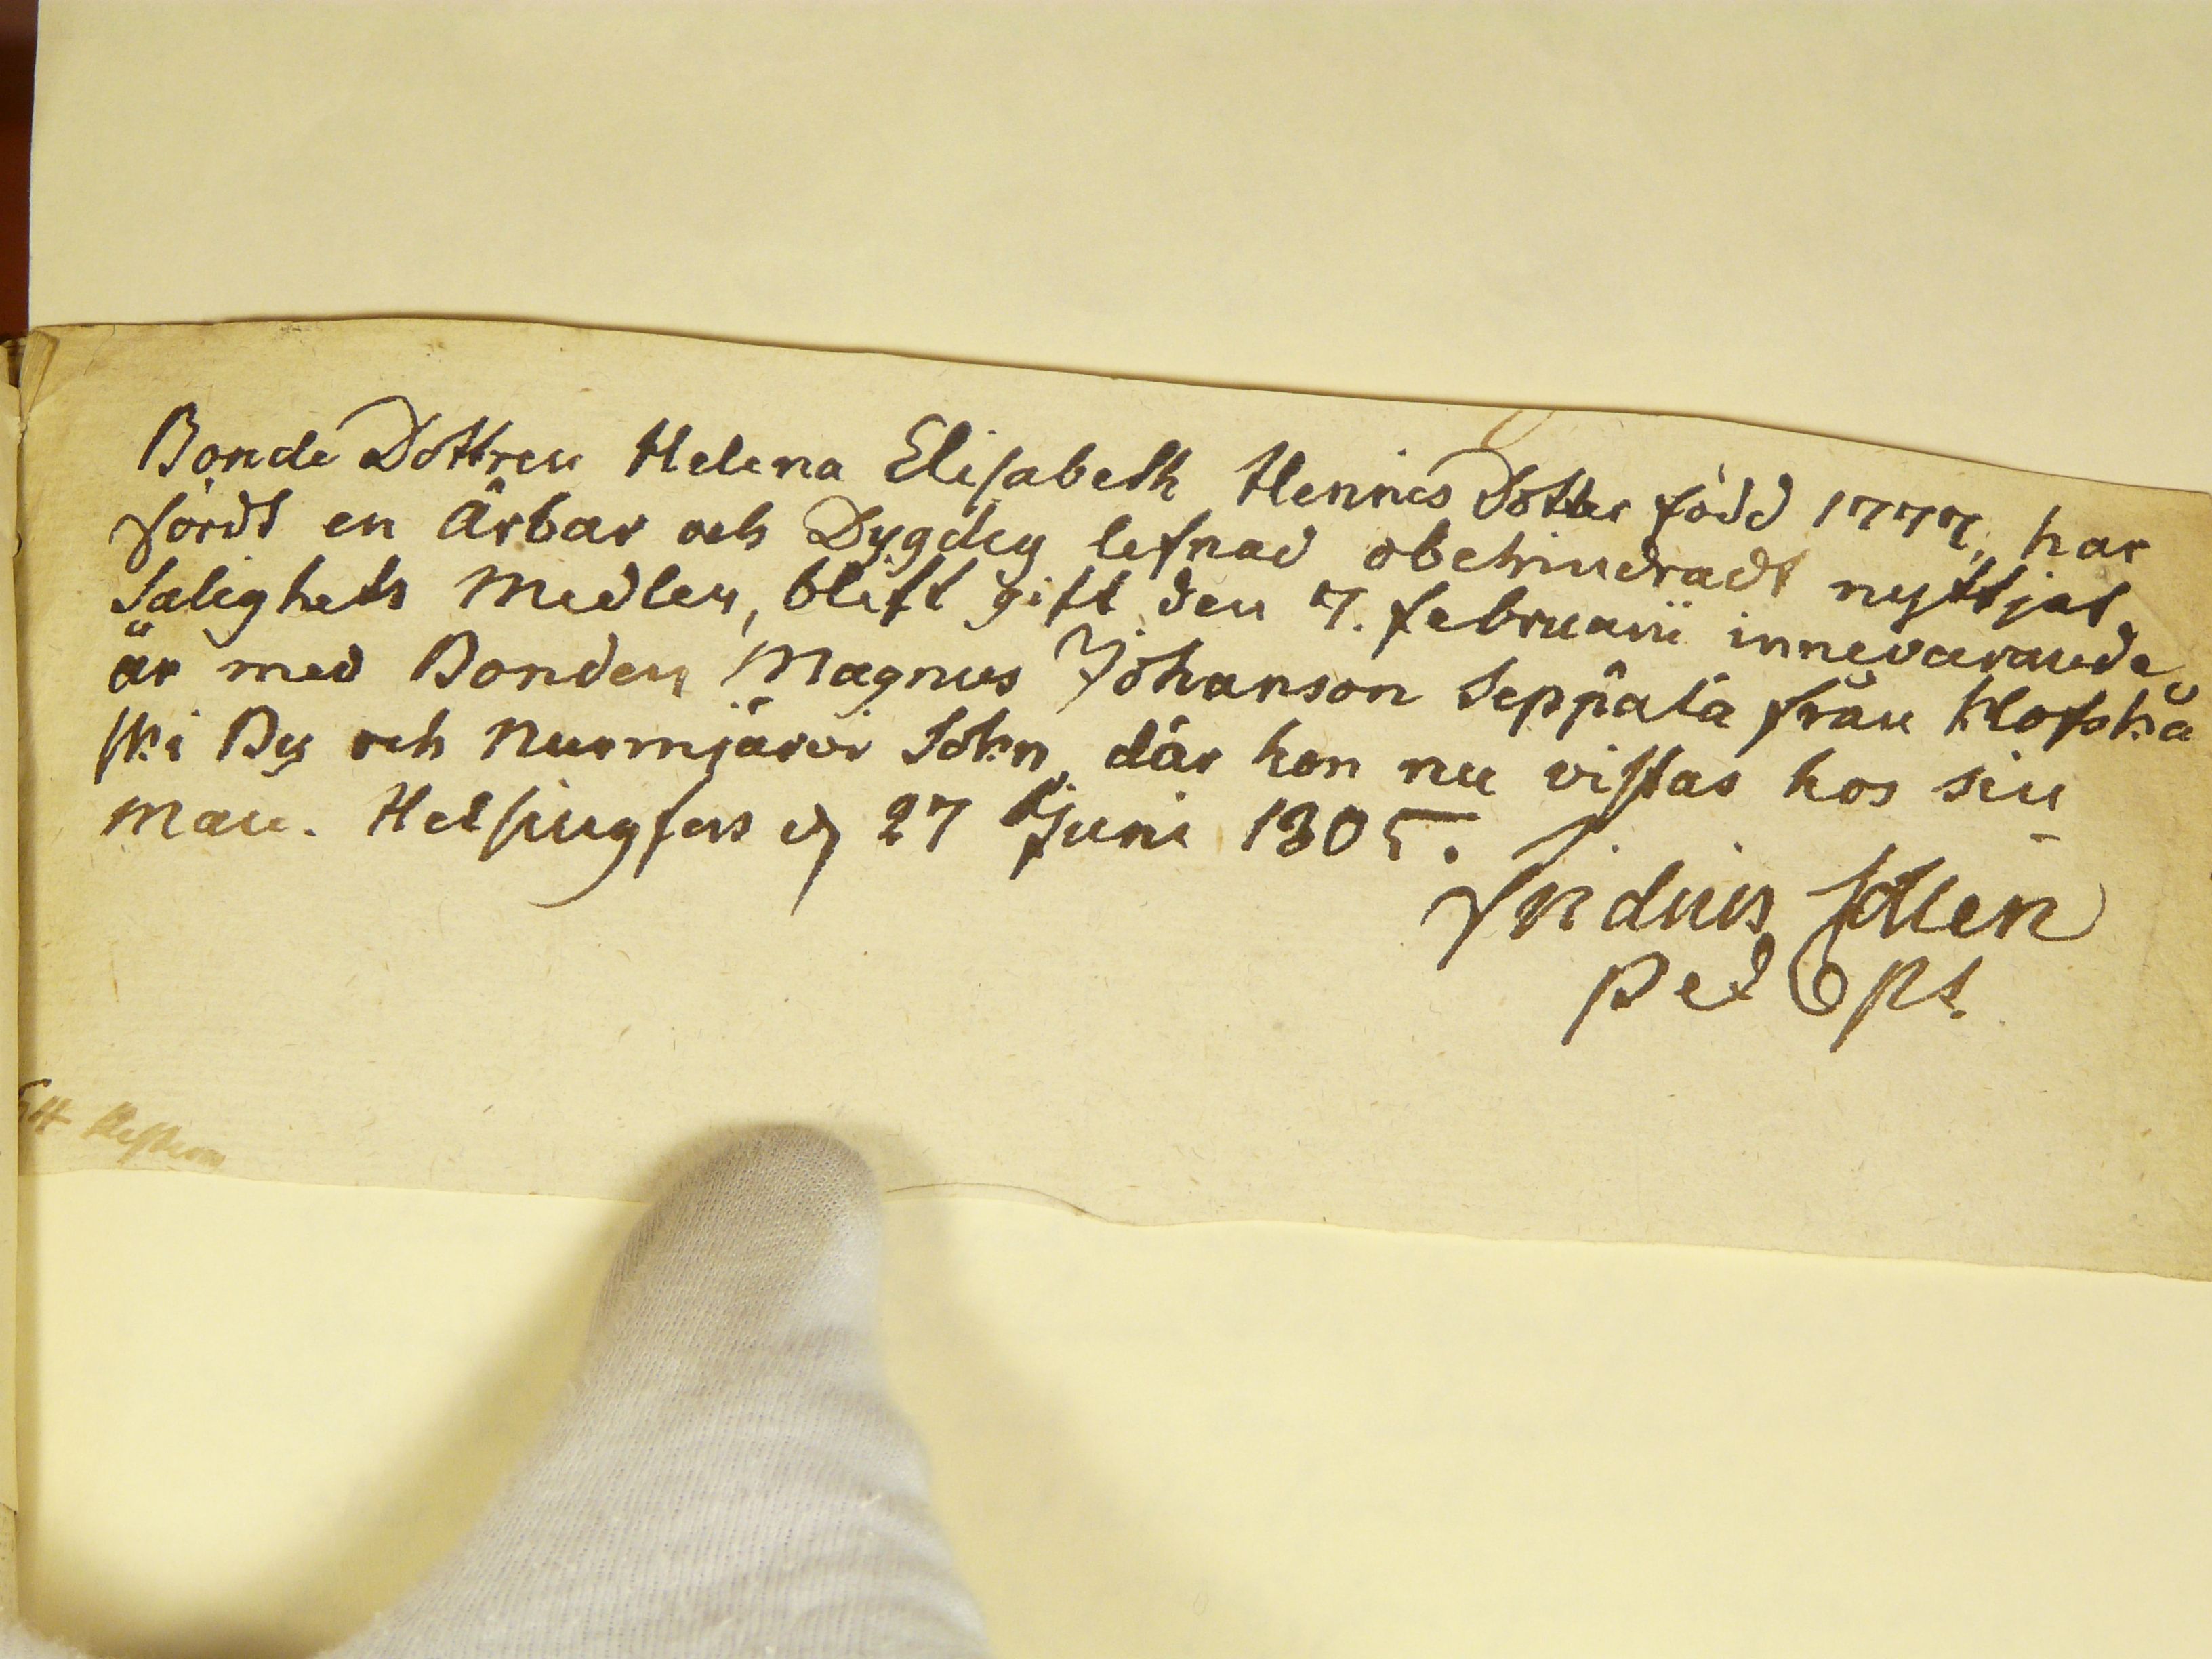 Bonde Dottren Helena Elisabeth Henrics Dotter född 1777, har
fördt en Ärbar och Dygdig lefnad obehindradt nyttjat
Salighets Medlen, blift gift den 7. februarii innevarande
år med Bonden Magnus Johanson Seppälä från Klofskå
ski By och Nurmjärvi Sokn, där hon nu vistas hos sin
Man. Helsingfors d 27 Juni 1805.
Past